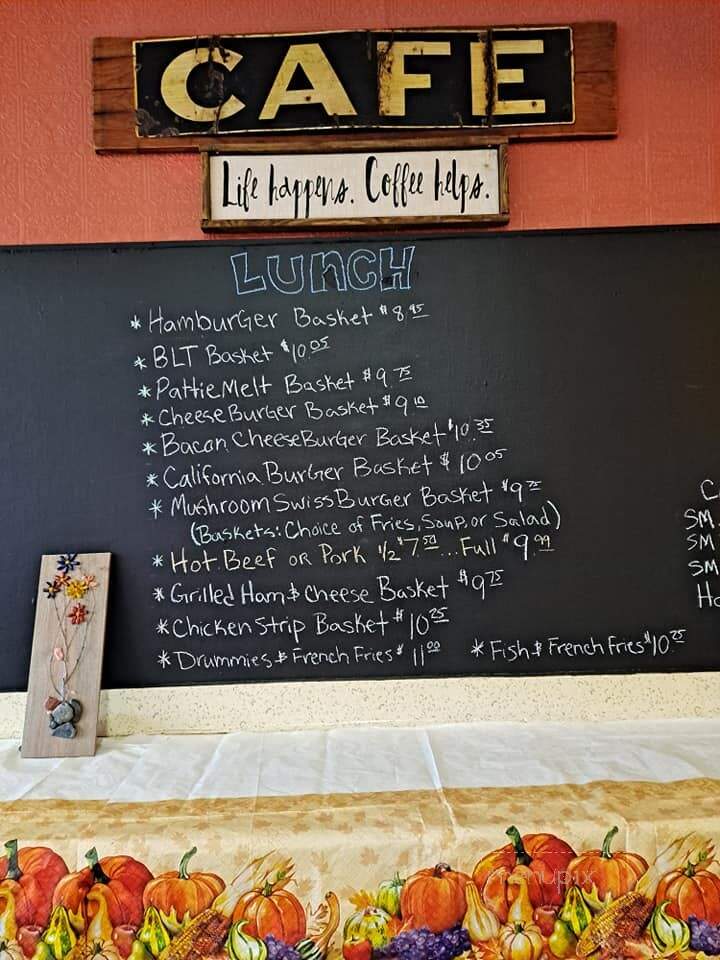 CAFE
Life happens. Coffee helps.
LUNCH
* Hamburger Basket $8.95
* BLT Basket $10.05
* Pattie Melt Basket $9.75
* Cheese Burger Basket $9.10
* Bacon Cheese Burger Basket $10.35
* California Burger Basket $10.05
* Mushroom Swiss Burger Basket $9.75
(Baskets: Choice of Fries, Soup, or Salad)
* Hot Beef or Pork 1/2 $7.50...Full $9.99
* Grilled Ham & Cheese Basket $9.75
* Chicken Strip Basket $10.25
* Drummies & French Fries $11.00
* Fish & French Fries $10.25
C
SM
SM
SM
Ho
menupix